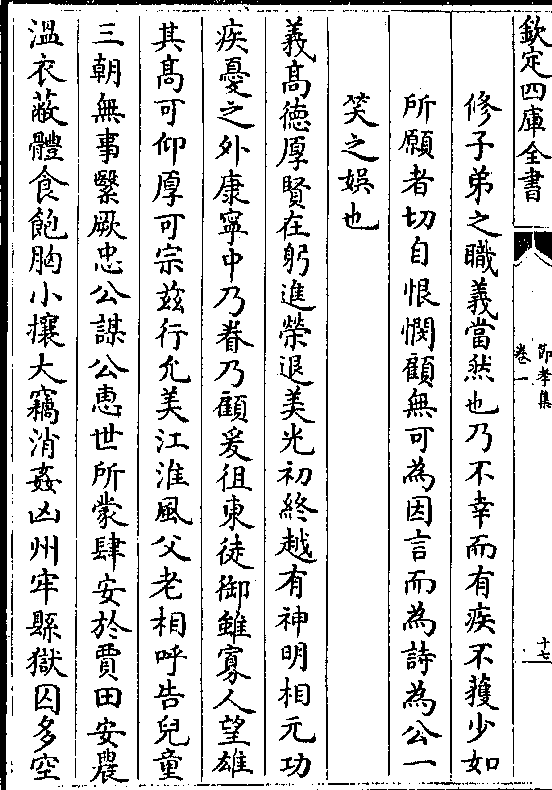 欽定四庫全書
節孝集
卷一
十七
修子弟之職義當然也乃不幸而有疾不獲少如
所願者切自恨憫顧無可為因言而為詩為公一
笑之娯也
義髙徳厚賢在躬進榮退美光初終越有神明相元功
疾憂之外康寧中乃眷乃顧爰徂東徒御雖寡人望雄
其髙可仰厚可宗兹行允美江淮風父老相呼告兒童
三朝無事繄厥忠公謀公恵世所蒙肆安於賈田安農
溫衣蔽體食飽胸小攘大竊消姦凶州牢縣獄囚多空